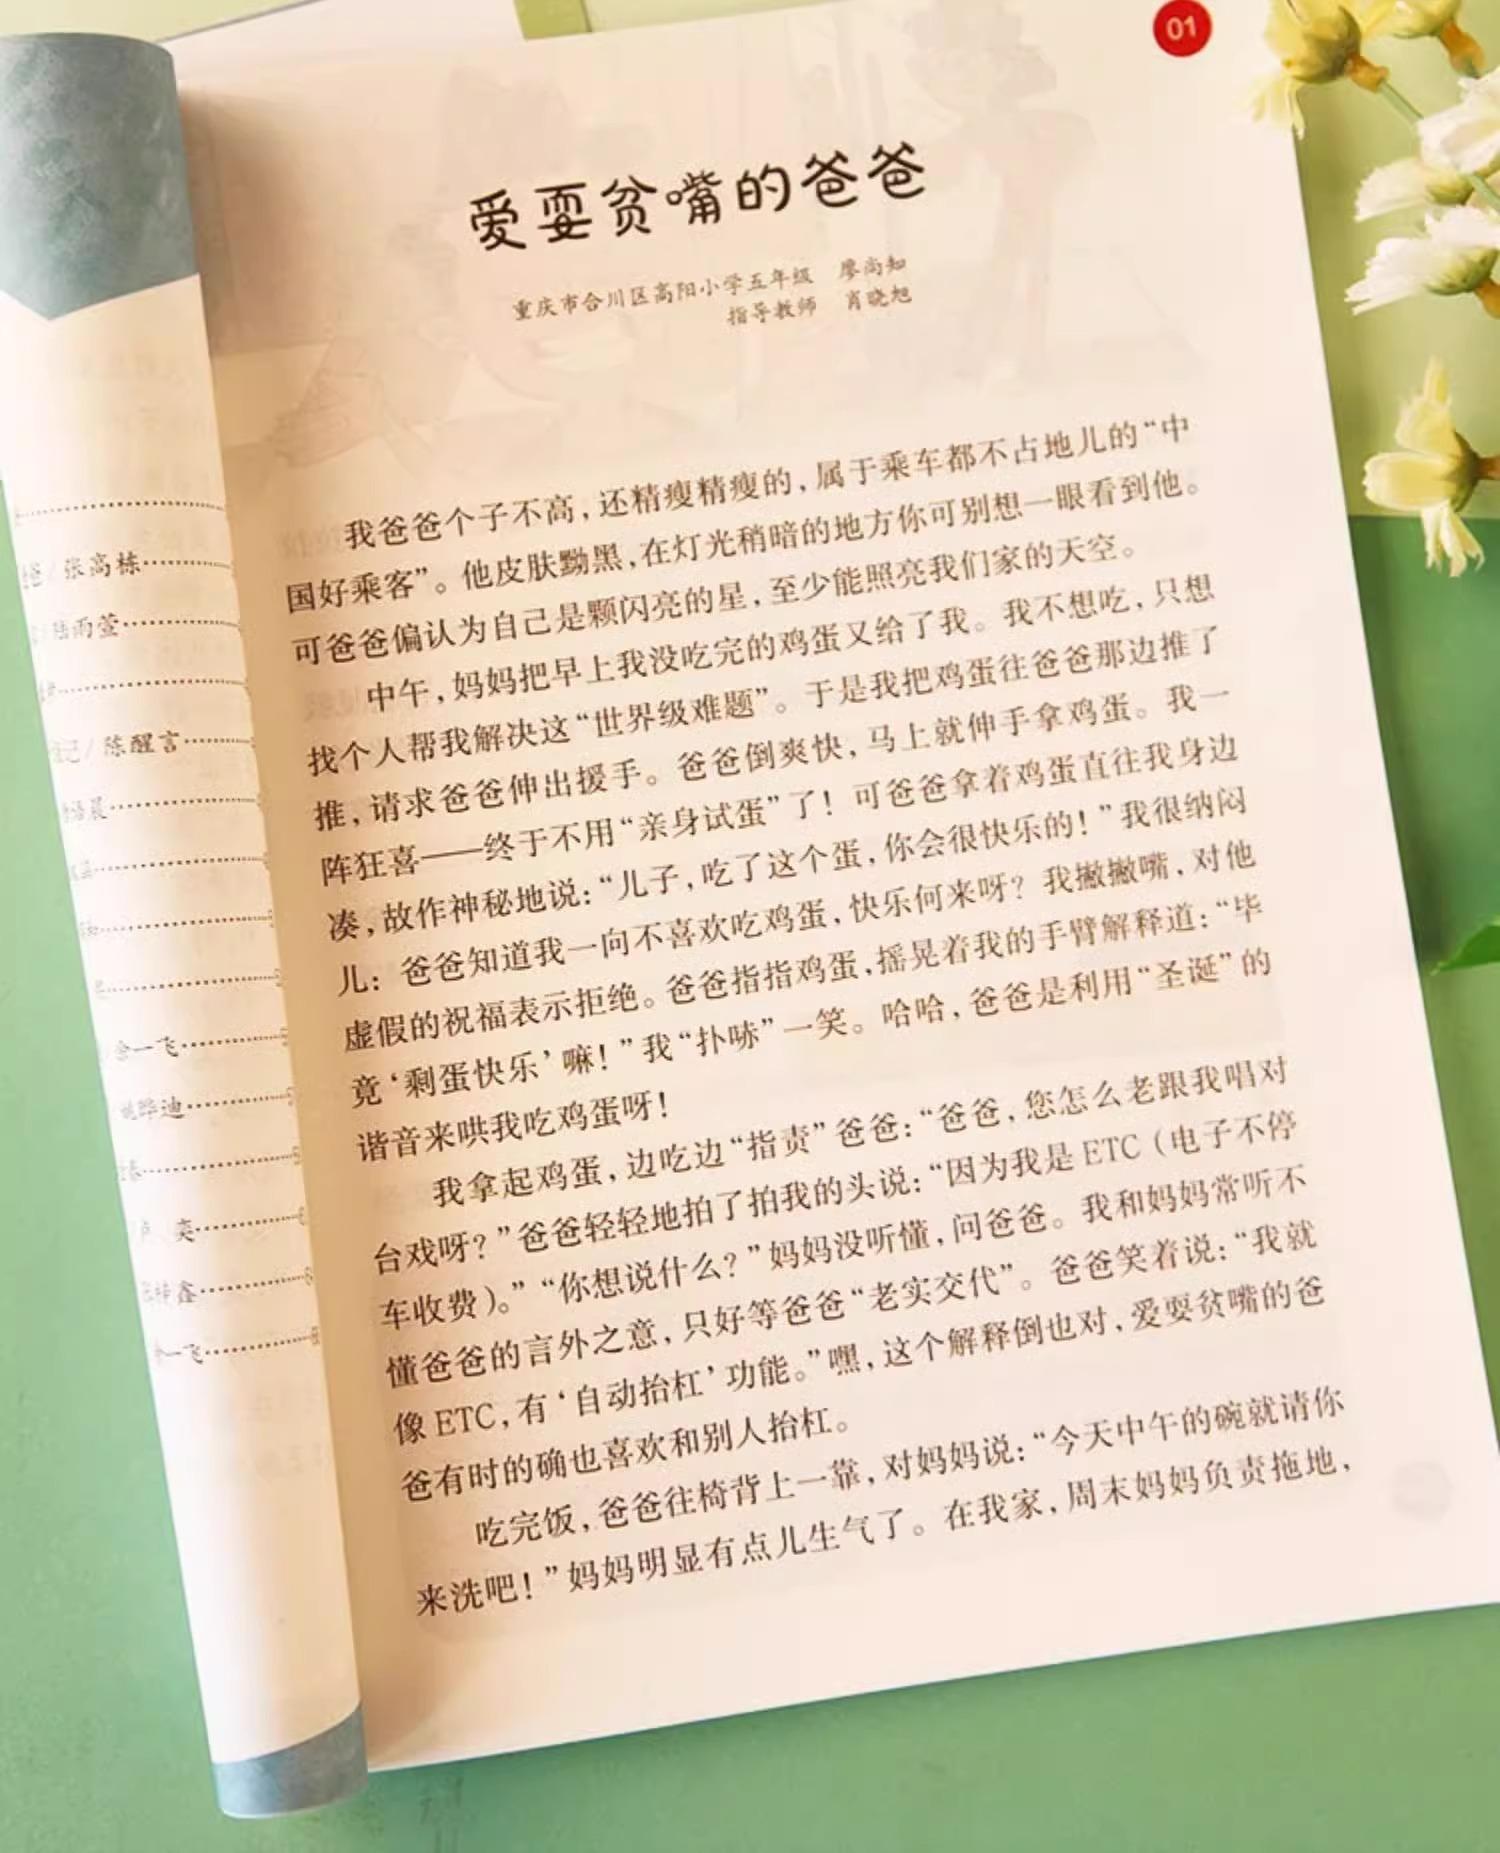 张高栋
陆雨萱
陈醒言
一飞
一飞
01
爱耍贫嘴的爸爸
重庆市合川区高阳小学五年级 廖尚知
指导教师 肖晓旭
我爸爸个子不高，还精瘦精瘦的，属于乘车都不占地儿的“中
国好乘客”。他皮肤黝黑，在灯光稍暗的地方你可别想一眼看到他。
可爸爸偏认为自己是颗闪亮的星，至少能照亮我们家的天空。
中午，妈妈把早上我没吃完的鸡蛋又给了我。我不想吃，只想
找个人帮我解决这“世界级难题”。于是我把鸡蛋往爸爸那边推了
推，请求爸爸伸出援手。爸爸倒爽快，马上就伸手拿鸡蛋。我一
阵狂喜——终于不用“亲身试蛋”了！可爸爸拿着鸡蛋直往我身边
凑，故作神秘地说：“儿子，吃了这个蛋，你会很快乐的！”我很纳闷
儿：爸爸知道我一向不喜欢吃鸡蛋，快乐何来呀？我撇撇嘴，对他
虚假的祝福表示拒绝。爸爸指指鸡蛋，摇晃着我的手臂解释道：“毕
竟‘剩蛋快乐’嘛！”我“扑哧”一笑。哈哈，爸爸是利用“圣诞”的
谐音来哄我吃鸡蛋呀！
我拿起鸡蛋，边吃边“指责”爸爸：“爸爸，您怎么老跟我唱对
台戏呀？”爸爸轻轻地拍了拍我的头说：“因为我是ETC（电子不停
车收费）。”“你想说什么？”妈妈没听懂，问爸爸。我和妈妈常听不
懂爸爸的言外之意，只好等爸爸“老实交代”。爸爸笑着说：“我就
像ETC，有‘自动抬杠’功能。”嘿，这个解释倒也对，爱耍贫嘴的爸
爸有时的确也喜欢和别人抬杠。
吃完饭，爸爸往椅背上一靠，对妈妈说：“今天中午的碗就请你
来洗吧！”妈妈明显有点儿生气了。在我家，周末妈妈负责拖地，